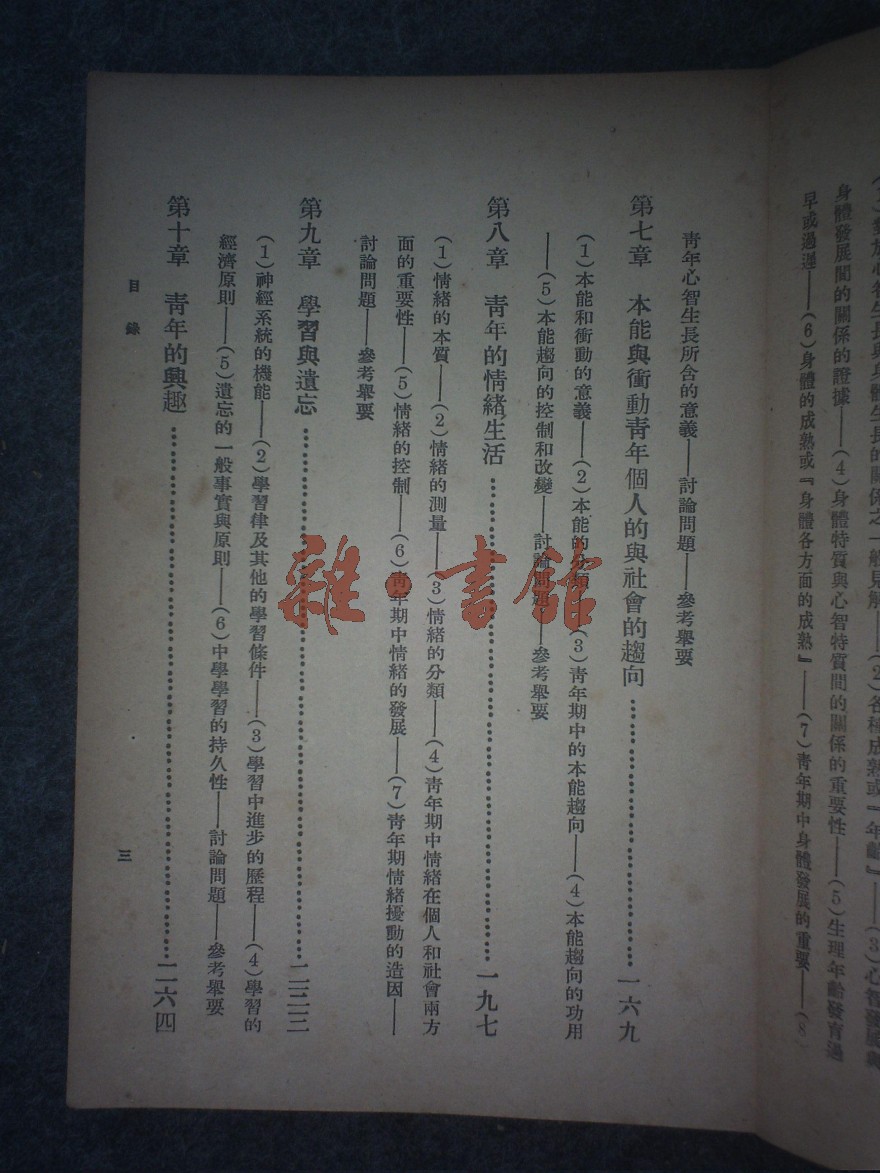 身體發展間的關係的證據——(4)身體特質與心智特質間的關係的重要性——(5)生理年齡發育過
早或過遲——(6)身體的成熟或『身體各方面的成熟』——(7)青年期中身體發展的重要——(8)
青年心智生長所含的意義——討論問題——參考舉要
第七章 本能與衝動青年個人的與社會的趨向……一六九
(1)本能和衝動的意義——(2)本能的分類——(3)青年期中的本能趨向——(4)本能趨向的功用
——(5)本能趨向的控制和改變——討論問題——參考舉要
第八章 青年的情緒生活……一九七
(1)情緒的本質——(2)情緒的測量——(3)情緒的分類——(4)青年期中情緒在個人和社會兩方
面的重要性——(5)情緒的控制——(6)青年期中情緒的發展——(7)青年期情緒擾動的造因——
討論問題——參考舉要
第九章 學習與遺忘……二三三
(1)神經系統的機能——(2)學習律及其他的學習條件——(3)學習中進步的歷程——(4)學習的
經濟原則——(5)遺忘的一般事實與原則——(6)中學學習的持久性——討論問題——參考舉要
第十章 青年的興趣……二六四
目錄
三
雜·書館